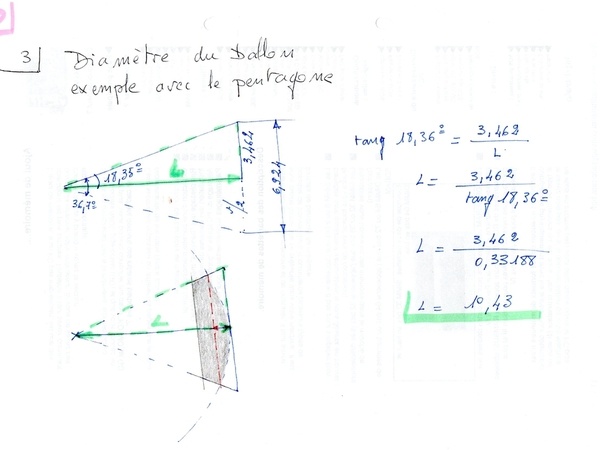 3
Diamètre du Ballon
exemple avec le pentagone
18,35°
36,7°
L
3,462
6,924
tang 18,36° = 3,462 / L
L = 3,462 / tang 18,36°
L = 3,462 / 0,33188
L = 10,43
L